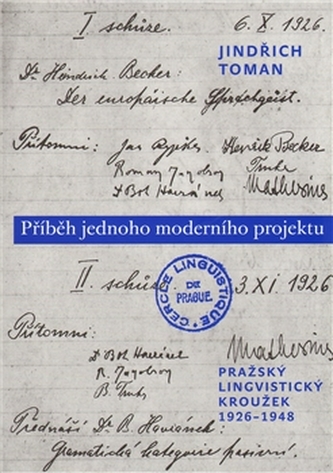 I. schůze. 6. X. 1926.
JINDŘICH
TOMAN
Dr Heindrich Becker:
Der europäische Sprachgeist.
Přítomni: Jan Rypka Henrik Becker
Roman Jakobson Trnka
Dr Boh Havránek Mathesius
Příběh jednoho moderního projektu
II. schůze. 3. XI. 1926
CERCLE LINGUISTIQUE
DE
PRAGUE
Přítomni: Mathesius
Dr Boh Havránek
R. Jakobson
B. Trnka
PRAŽSKÝ
LINGVISTICKÝ
KROUŽEK
1926–1948
Přednáší Dr. B. Havránek:
Gramatická kategorie pasivní.